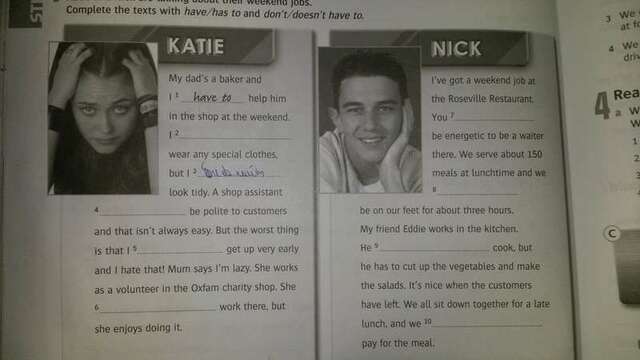 about their weekend jobs.
Complete the texts with have/has to and don't/doesn't have to.
KATIE
My dad's a baker and
I 1 have to help him
in the shop at the weekend.
I 2
wear any special clothes,
but I 3
look tidy. A shop assistant
4 be polite to customers
and that isn't always easy. But the worst thing
is that I 5 get up very early
and I hate that! Mum says I'm lazy. She works
as a volunteer in the Oxfam charity shop. She
6 work there, but
she enjoys doing it.
NICK
I've got a weekend job at
the Roseville Restaurant.
You 7
be energetic to be a waiter
there. We serve about 150
meals at lunchtime and we
8
be on our feet for about three hours.
My friend Eddie works in the kitchen.
He 9 cook, but
he has to cut up the vegetables and make
the salads. It's nice when the customers
have left. We all sit down together for a late
lunch, and we 10
pay for the meal.
3 We
4 We
4 Rea
a W
W
1
2
3
C